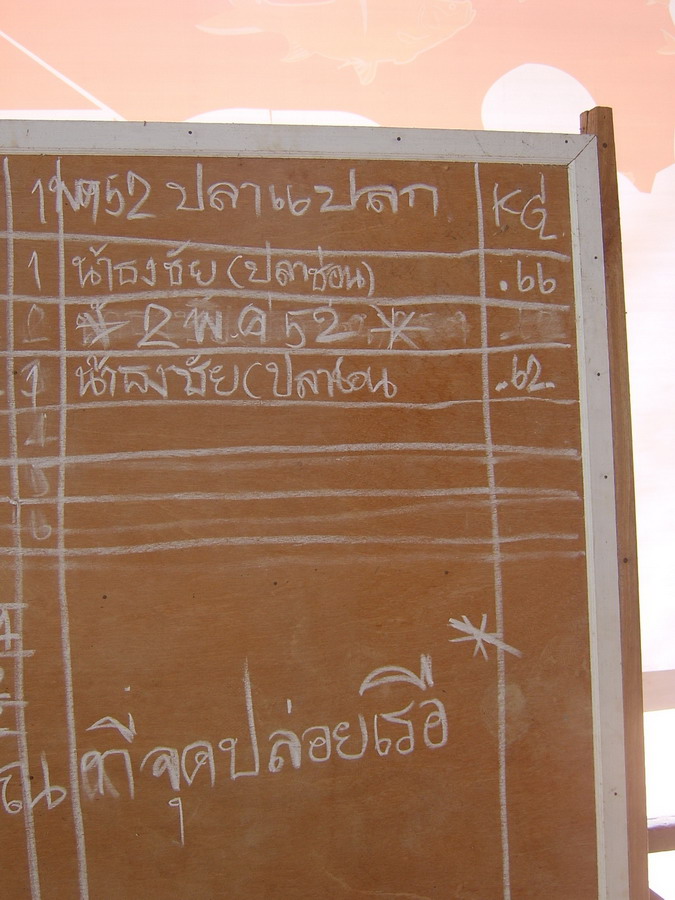 1 พค 52 ปลาแปลก KG
1 น้าธงชัย (ปลาช่อน) .66
2 * 2 พ ค 52 *
1 น้าธงชัย (ปลา .62
4
5
6
*
ที่จุดปล่อยเรือ